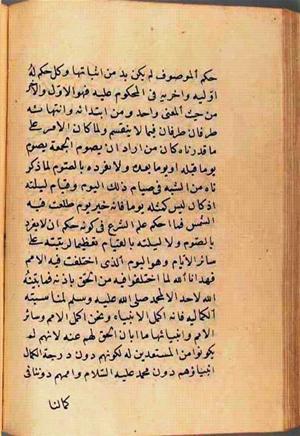 حكم الموصوف لم يكن بد من اثباتها وكل حكم له
اوّليه واخريه فى المحكوم عليه فهو الاوّل والآخر
من حيث المعنى واحد ومن ابتدائه وانتهائه
طرفان طرفان فيما لا ينقسم ولما كان الامر على
ما قدرناه كان من اراد ان يصوم الجمعة يصوم
يوما قبله او يوما بعده ولا يفرده بالصّوم لما ذكر
ناه من الشبه فى صيام ذلك اليوم وقيام ليلته
اذ كان ليس كمثله يوما فانه خير يوم طلعت فيه
الشمس فما احكم علم الشرع فى كونه حكم ان لا يفرد
بالصّوم ولا ليلته بالقيام تعظيما لرتبته على
سائر الايّام وهو اليوم الّذى اختلفت فيه الامم
فهدانا الله لما اختلفوا فيه من الحق باذنه فما بيّنه
الله لاحد الا لمحمد صلى الله عليه وسلم لمناسبته
الكماليه فانه اكمل الانبياء ونحن اكمل الامم وسائر
الامم وانبيائها ما ابان الحق لهم عنه لانهم لم
يكونوا من المستعدين له لكونهم دون درجة الكمال
انبياؤهم دون محمد عليه السّلام واممهم دوننا فى
كمالنا